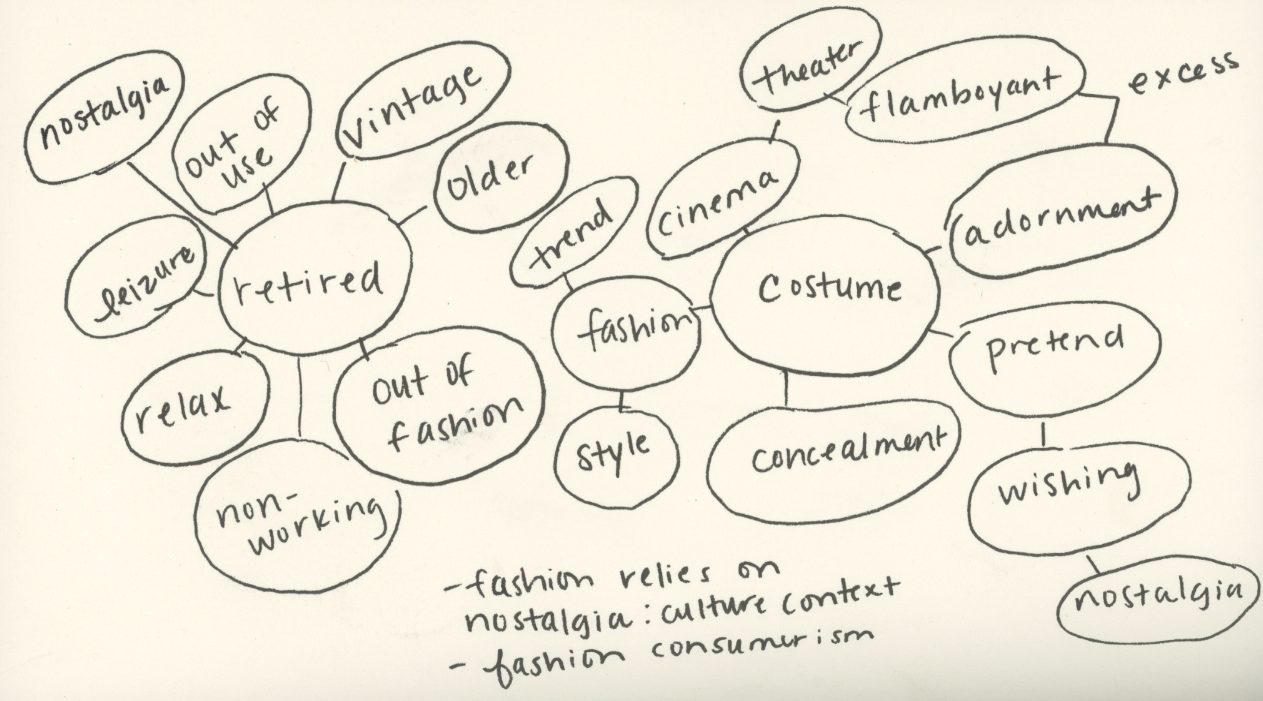 nostalgia
out of
use
vintage
older
leizure
retired
relax
out of
fashion
non-
working
trend
fashion
style
theater
flamboyant
excess
cinema
adornment
costume
pretend
concealment
wishing
nostalgia
-fashion relies on
nostalgia: culture context
- fashion consumerism